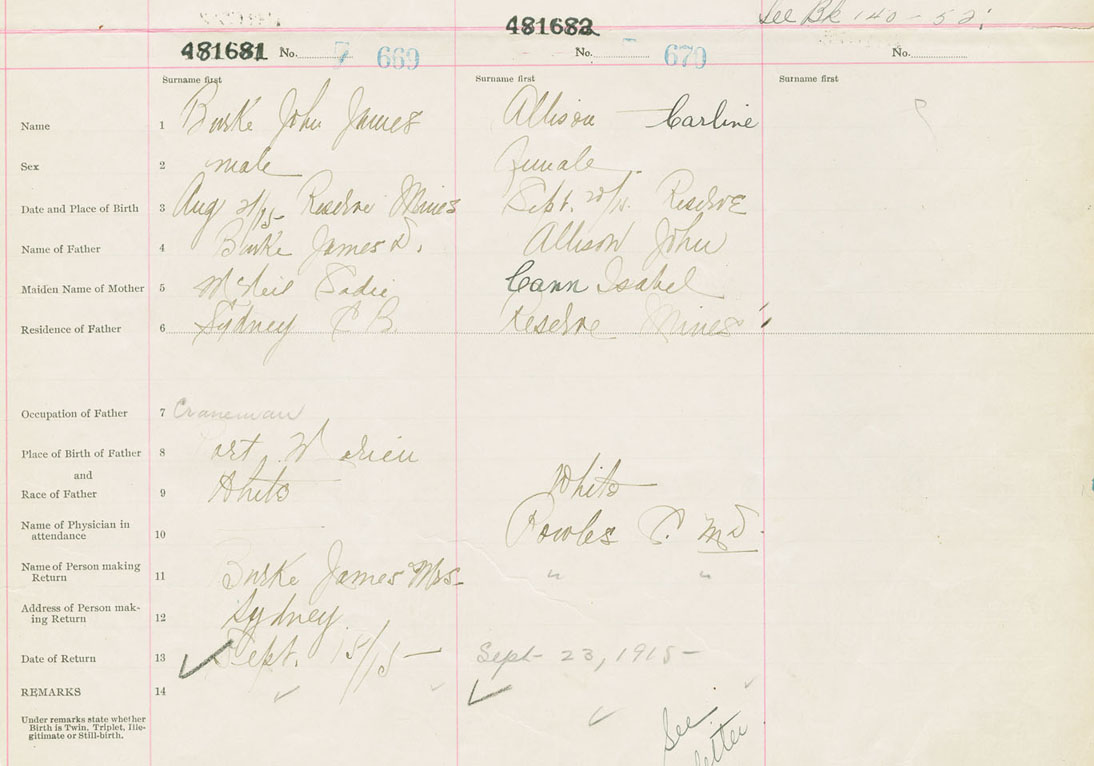 See Bk 140-52
481682
481681 No. 7 669 No. 679 No.
Surname first Surname first Surname first
Name 1 Burke John James Allison Carline
Sex 2 male Female
Date and Place of Birth 3 Aug 21/15 Reserve Mines Sept. 20/15 Reserve
Name of Father 4 Burke James D. Allison John
Maiden Name of Mother 5 McNeil Sadie Cann Isabel
Residence of Father 6 Sydney C B. Reserve Mines
Occupation of Father 7 Craneman
Place of Birth of Father 8 Port Morien
and
Race of Father 9 White White
Name of Physician in
attendance 10 C. MD.
Name of Person making
Return 11 Burke James Mrs. " "
Address of Person mak-
ing Return 12 Sydney
Date of Return 13 Sept. 15/15 Sept 23, 1915
REMARKS 14
Under remarks state whether
Birth is Twin, Triplet, Ille-
gitimate or Still-birth.
See
letter